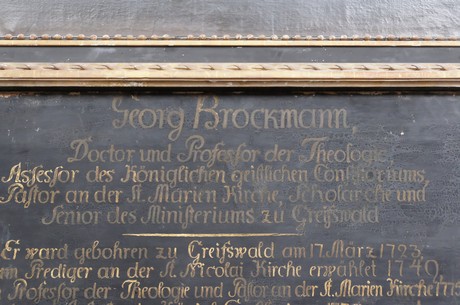 Georg Brockmann,
Doctor und Professor der Theologie,
Assessor des Königlichen geistlichen Consistoriums,
Pastor an der St. Marien Kirche, Scholarche und
Senior des Ministeriums zu Greifswald
Er ward gebohren zu Greifswald am 17. März 1723,
Prediger an der St. Nicolai Kirche erwählet 1749,
Professor der Theologie und Pastor an der St. Marien Kirche